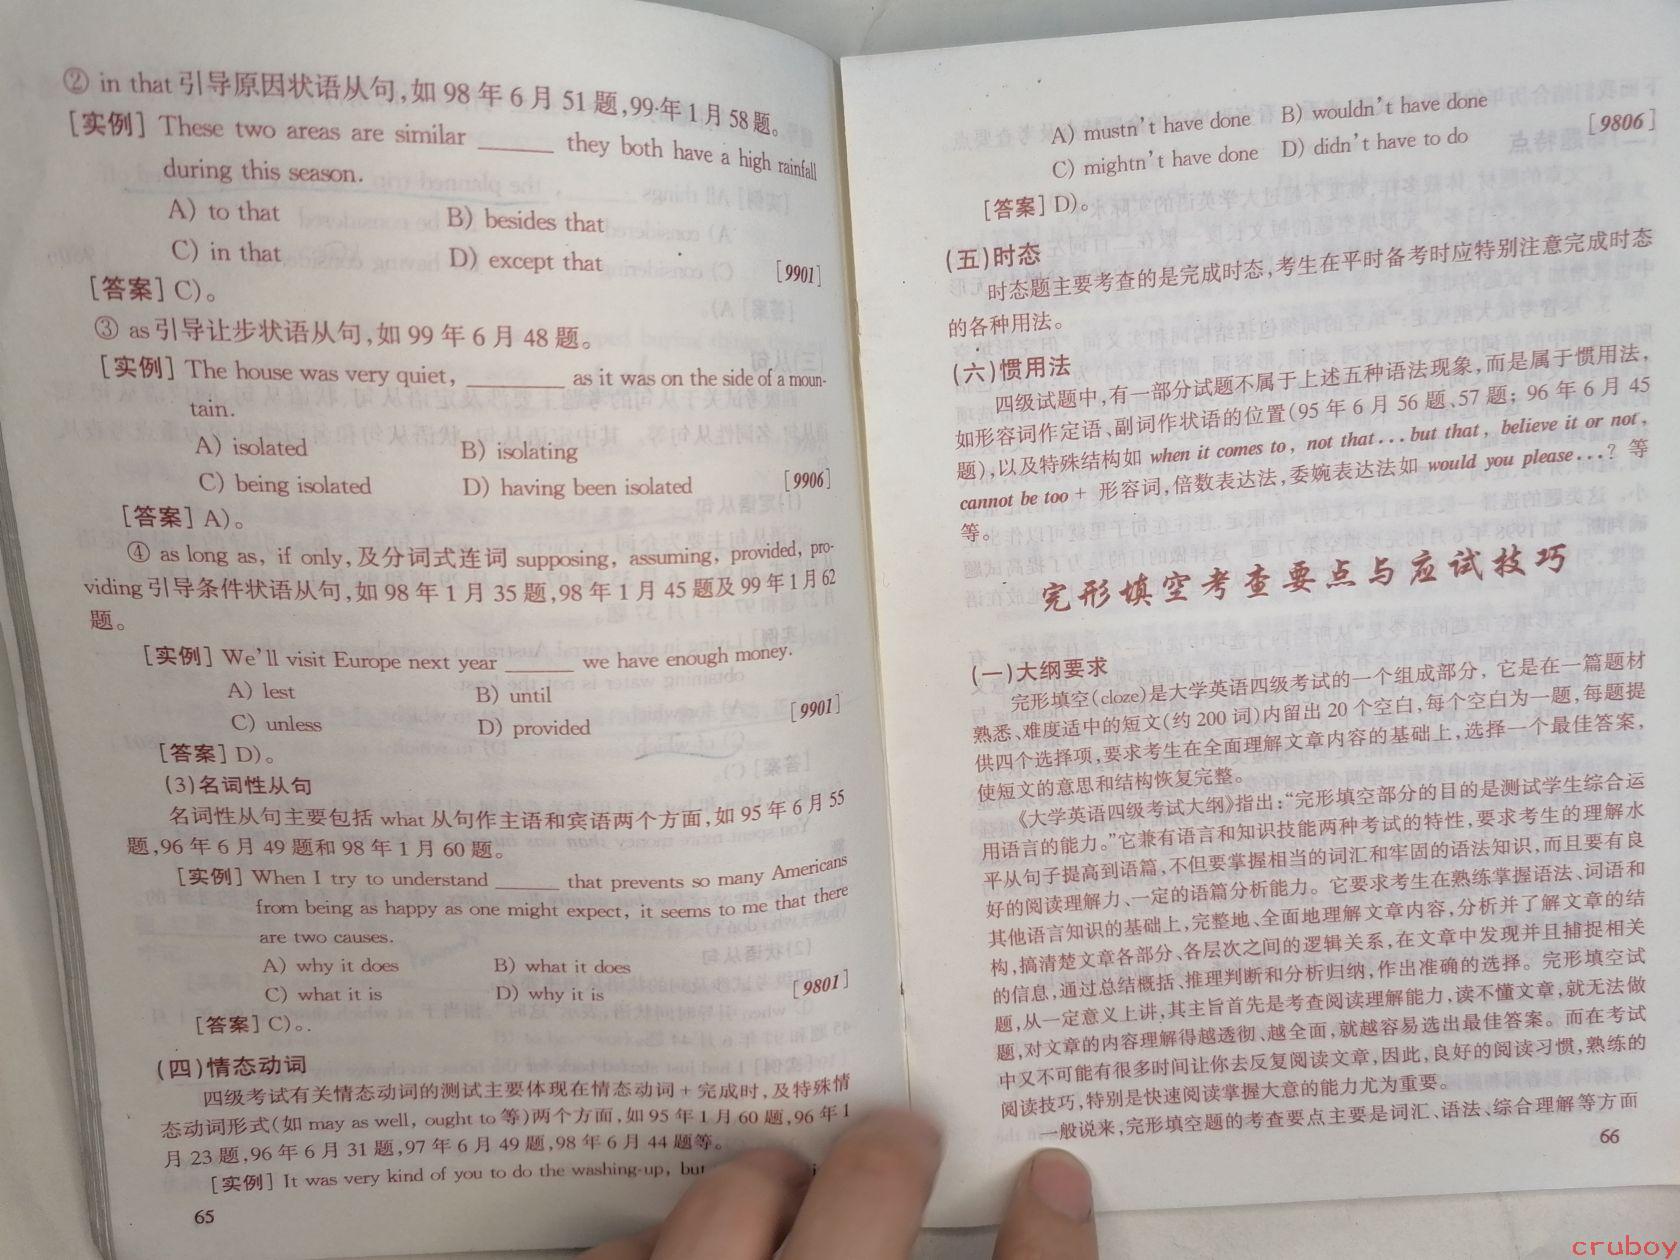 ② in that 引导原因状语从句,如 98 年 6 月 51 题,99 年 1 月 58 题。
[实例] These two areas are similar ______ they both have a high rainfall
during this season.
A) to that B) besides that
C) in that D) except that [9901]
[答案] C)。
③ as 引导让步状语从句,如 99 年 6 月 48 题。
[实例] The house was very quiet, ______ as it was on the side of a moun-
tain.
A) isolated B) isolating
C) being isolated D) having been isolated [9906]
[答案] A)。
④ as long as, if only,及分词式连词 supposing, assuming, provided, pro-
viding 引导条件状语从句,如 98 年 1 月 35 题,98 年 1 月 45 题及 99 年 1 月 62
题。
[实例] We'll visit Europe next year ______ we have enough money.
A) lest B) until
C) unless D) provided [9901]
[答案] D)。
(3)名词性从句
名词性从句主要包括 what 从句作主语和宾语两个方面,如 95 年 6 月 55
题,96 年 6 月 49 题和 98 年 1 月 60 题。
[实例] When I try to understand ______ that prevents so many Americans
from being as happy as one might expect, it seems to me that there
are two causes.
A) why it does B) what it does
C) what it is D) why it is [9801]
[答案] C)。.
(四)情态动词
四级考试有关情态动词的测试主要体现在情态动词 + 完成时,及特殊情
态动词形式(如 may as well, ought to 等)两个方面,如 95 年 1 月 60 题,96 年 1
月 23 题,96 年 6 月 31 题,97 年 6 月 49 题,98 年 6 月 44 题等。
[实例] It was very kind of you to do the washing-up, but
65
A) mustn't have done B) wouldn't have done
C) mightn't have done D) didn't have to do [9806]
[答案] D)。
(五)时态
时态题主要考查的是完成时态,考生在平时备考时应特别注意完成时态
的各种用法。
(六)惯用法
四级试题中,有一部分试题不属于上述五种语法现象,而是属于惯用法,
如形容词作定语、副词作状语的位置(95 年 6 月 56 题、57 题; 96 年 6 月 45
题),以及特殊结构如 when it comes to, not that...but that, believe it or not,
cannot be too + 形容词,倍数表达法,委婉表达法如 would you please...? 等
等。
完形填空考查要点与应试技巧
(一)大纲要求
完形填空(cloze)是大学英语四级考试的一个组成部分, 它是在一篇题材
熟悉、难度适中的短文(约 200 词)内留出 20 个空白,每个空白为一题,每题提
供四个选择项,要求考生在全面理解文章内容的基础上,选择一个最佳答案,
使短文的意思和结构恢复完整。
《大学英语四级考试大纲》指出:“完形填空部分的目的是测试学生综合运
用语言的能力。”它兼有语言和知识技能两种考试的特性,要求考生的理解水
平从句子提高到语篇,不但要掌握相当的词汇和牢固的语法知识,而且要有良
好的阅读理解力、一定的语篇分析能力。它要求考生在熟练掌握语法、词语和
其他语言知识的基础上,完整地、全面地理解文章内容,分析并了解文章的结
构,搞清楚文章各部分、各层次之间的逻辑关系,在文章中发现并且捕捉相关
的信息,通过总结概括、推理判断和分析归纳,作出准确的选择。完形填空试
题,从一定意义上讲,其主旨首先是考查阅读理解能力,读不懂文章,就无法做
题,对文章的内容理解得越透彻、越全面,就越容易选出最佳答案。而在考试
中又不可能有很多时间让你去反复阅读文章,因此,良好的阅读习惯,熟练的
阅读技巧,特别是快速阅读掌握大意的能力尤为重要。
一般说来,完形填空题的考查要点主要是词汇、语法、综合理解等方面
66
cruboy